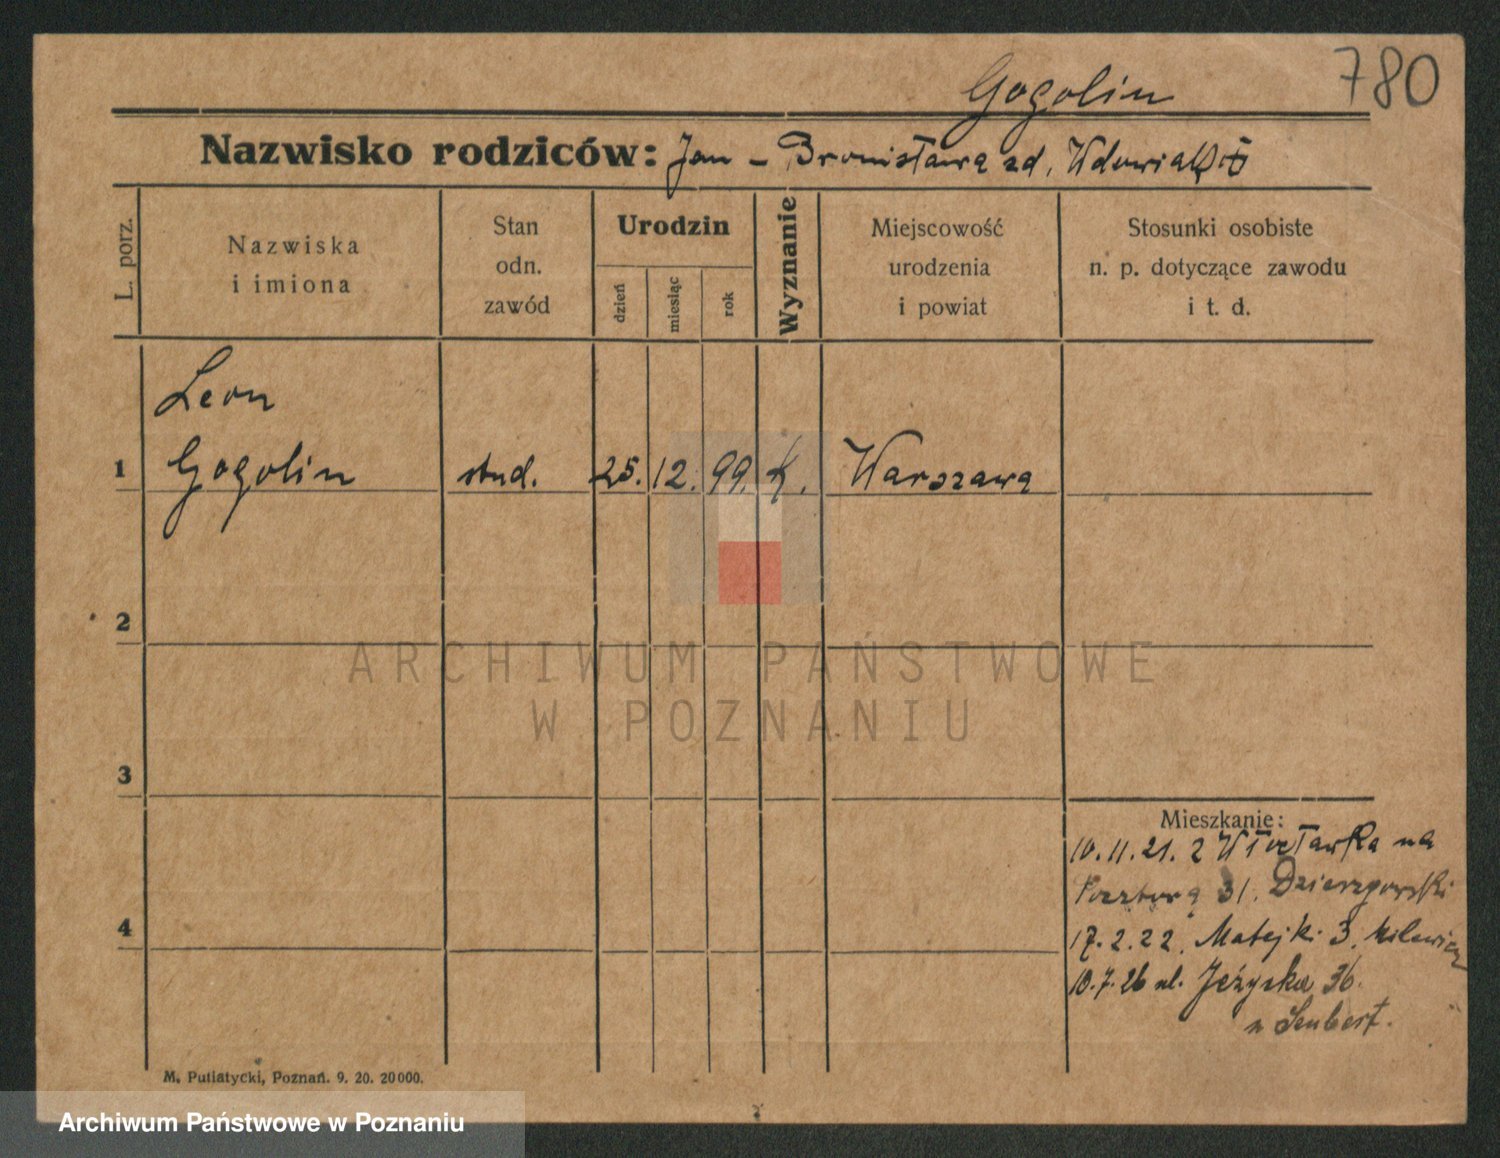 Gogolin
780
Nazwisko rodziców: Jan – Bronisława zd.
L. porz.
Nazwiska
i imiona
Stan
odn.
zawód
Urodzin
dzień
miesiąc
rok
Wyznanie
Miejscowość
urodzenia
i powiat
Stosunki osobiste
n. p. dotyczące zawodu
i t. d.
Leon
1 Gogolin stud. 25. 12. 99. K. Warszawa
2
ARCHIWUM PAŃSTWOWE
W POZNANIU
3
Mieszkanie:
10.11.21. z Włocławka na
31. Dzierzgowski
4
17.2.22. Matejki 3.
10.7.26 ul. Jeżycka 36.
M. Putiatycki, Poznań. 9. 20. 20000.
Archiwum Państwowe w Poznaniu